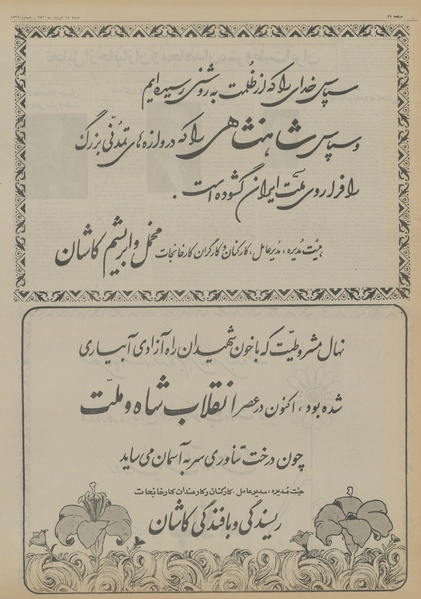 صفحه ۲۲
سپاس خدای را که از ظلمت به روشنی رسیده ایم
و سپاس شاهنشاهی را که دروازه های تمدنی بزرگ
را فرا روی ملت ایران گشوده است .
هیئت مدیره ، مدیرعامل ، کارکنان و کارگران کارخانجات مخمل و ابریشم کاشان
نهال مشروطیت که با خون شهیدان راه آزادی آبیاری
شده بود ، اکنون در عصر انقلاب شاه و ملت
چون درخت تناوری سر به آسمان می ساید
هیئت مدیره ، مدیرعامل ، کارکنان و کارمندان کارخانجات
ریسندگی و بافندگی کاشان